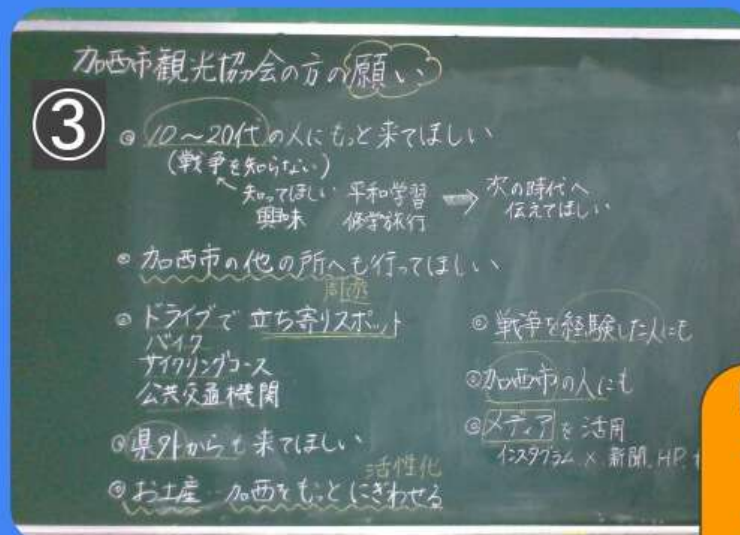 加西市観光協会の方の願い
③
◎10〜20代の人にもっと来てほしい
(戦争を知らない)
知ってほしい 平和学習 ⇒ 次の時代へ
興味 修学旅行 伝えてほしい
◎加西市の他の所へも行ってほしい
周遊
◎ドライブで立ち寄りスポット
バイク
サイクリングコース
公共交通機関
◎県外からも来てほしい
活性化
◎お土産 加西をもっとにぎわせる
◎戦争を経験した人にも
◎加西市の人にも
◎メディアを活用
インスタグラム × 新聞、HP、